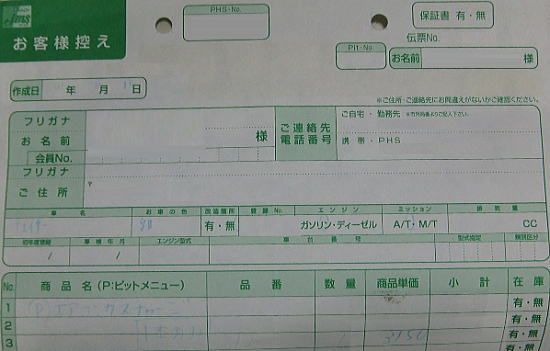 Jms
お客様控え
PHS-No.
保証書 有・無
伝票No.
Pit-No
お名前 様
作成日 年 月 日
※ご住所・ご連絡先にお間違えがないかご確認ください。
フリガナ
お名前 様
会員No.
ご連絡先
電話番号
ご自宅・勤務先 ※市外局番よりご記入下さい。
携帯・PHS
フリガナ
ご住所
〒
車名 お車の色 改造箇所 登録No. エンジン ミッション 排気量
有・無 ガソリン・ディーゼル A/T・M/T CC
初年度登録 車検年月 エンジン型式 車台番号 型式指定 類別区分
/ /
No. 商品名(P:ピットメニュー) 品番 数量 商品単価 小計 在庫
1 (P)エアー 有・無
2 有・無
3 有・無